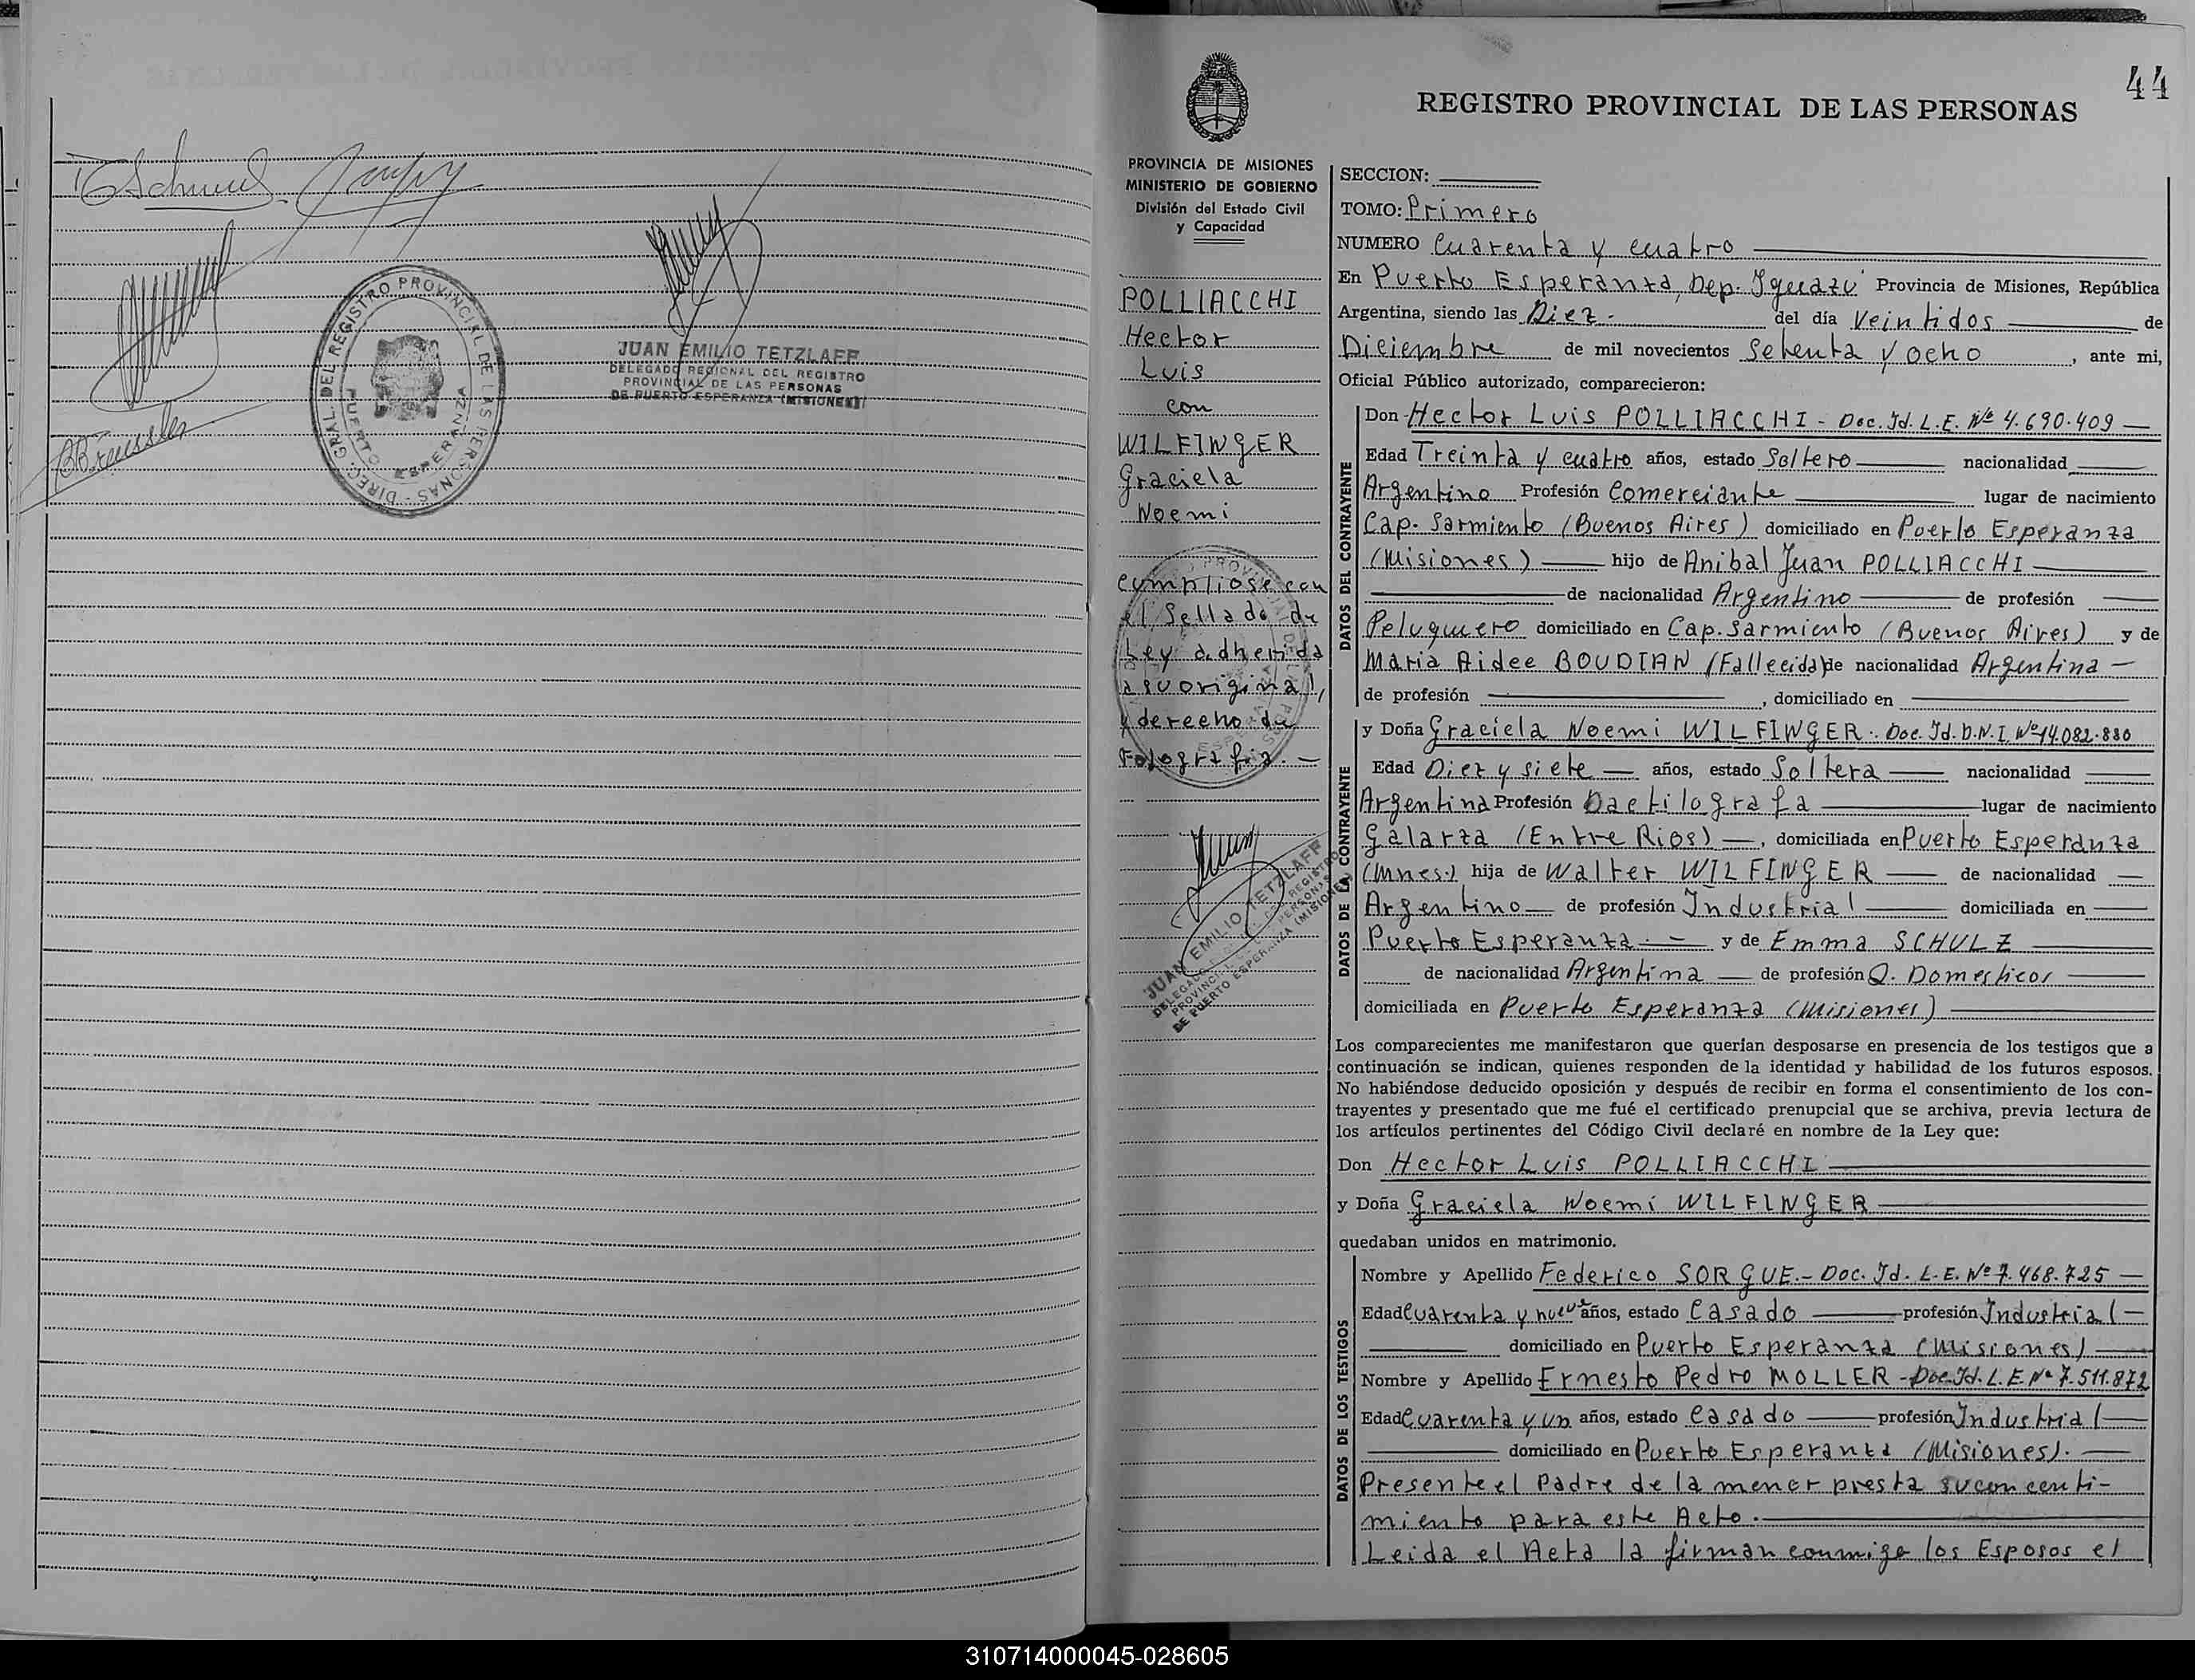 REGISTRO PROVINCIAL
DEL
DE LAS PERSONAS
DIREC. GRAL.
PUERTO ESPERANZA
JUAN EMILIO TETZLAFF
DELEGADO REGIONAL DEL REGISTRO
PROVINCIAL DE LAS PERSONAS
DE PUERTO ESPERANZA (MISIONES)
44
REGISTRO PROVINCIAL DE LAS PERSONAS
PROVINCIA DE MISIONES
MINISTERIO DE GOBIERNO
División del Estado Civil
y Capacidad
POLLIACCHI
Hector
Luis
con
WILFINGER
Graciela
Noemi
cumpliose con
el Sellado de
Ley adherida
a su original,
y derecho de
Fotografia. —
JUAN EMILIO TETZLAFF
DE PUERTO ESPERANZA (MISIONES)
SECCION:
TOMO: Primero
NUMERO Cuarenta y cuatro
En Puerto Esperanza, Dep. Iguazú Provincia de Misiones, República
Argentina, siendo las Diez.- del día Veintidos de
Diciembre de mil novecientos Setenta y ocho , ante mi,
Oficial Público autorizado, comparecieron:
DATOS DEL CONTRAYENTE
Don Hector Luis POLLIACCHI - Doc. Id. L.E. Nº 4.690.409 —
Edad Treinta y cuatro años, estado Soltero nacionalidad
Argentino Profesión Comerciante lugar de nacimiento
Cap. Sarmiento (Buenos Aires) domiciliado en Puerto Esperanza
(Misiones) hijo de Anibal Juan POLLIACCHI
de nacionalidad Argentino de profesión
Peluquero domiciliado en Cap. Sarmiento (Buenos Aires) y de
Maria Aidee BOUDIAN (Fallecida) de nacionalidad Argentina —
de profesión , domiciliado en
DATOS DE LA CONTRAYENTE
y Doña Graciela Noemi WILFINGER.- Doc. Id. D.N.I. Nº 14.082.880
Edad Diez y siete años, estado Soltera nacionalidad
Argentina Profesión Dactilografa lugar de nacimiento
Galarza (Entre Rios) —, domiciliada en Puerto Esperanza
(Mnes.) hija de Walter WILFINGER de nacionalidad
Argentino de profesión Industrial domiciliada en
Puerto Esperanza.- y de Emma SCHULZ
de nacionalidad Argentina de profesión Q. Domesticos
domiciliada en Puerto Esperanza (Misiones)
Los comparecientes me manifestaron que querían desposarse en presencia de los testigos que a
continuación se indican, quienes responden de la identidad y habilidad de los futuros esposos.
No habiéndose deducido oposición y después de recibir en forma el consentimiento de los con-
trayentes y presentado que me fué el certificado prenupcial que se archiva, previa lectura de
los artículos pertinentes del Código Civil declaré en nombre de la Ley que:
Don Hector Luis POLLIACCHI
y Doña Graciela Noemi WILFINGER
quedaban unidos en matrimonio.
DATOS DE LOS TESTIGOS
Nombre y Apellido Federico SORGUE.- Doc. Id. L.E. Nº 7.468.725 —
Edad Cuarenta y nueve años, estado Casado profesión Industrial —
domiciliado en Puerto Esperanza (Misiones)
Nombre y Apellido Ernesto Pedro MOLLER - Doc. Id. L.E. Nº 7.511.872
Edad Cuarenta y un años, estado Casado profesión Industrial
domiciliado en Puerto Esperanza (Misiones).
Presente el Padre de la menor presta su concenti-
miento para este Acto.
Leida el Acta la firman conmigo los Esposos el
310714000045-028605